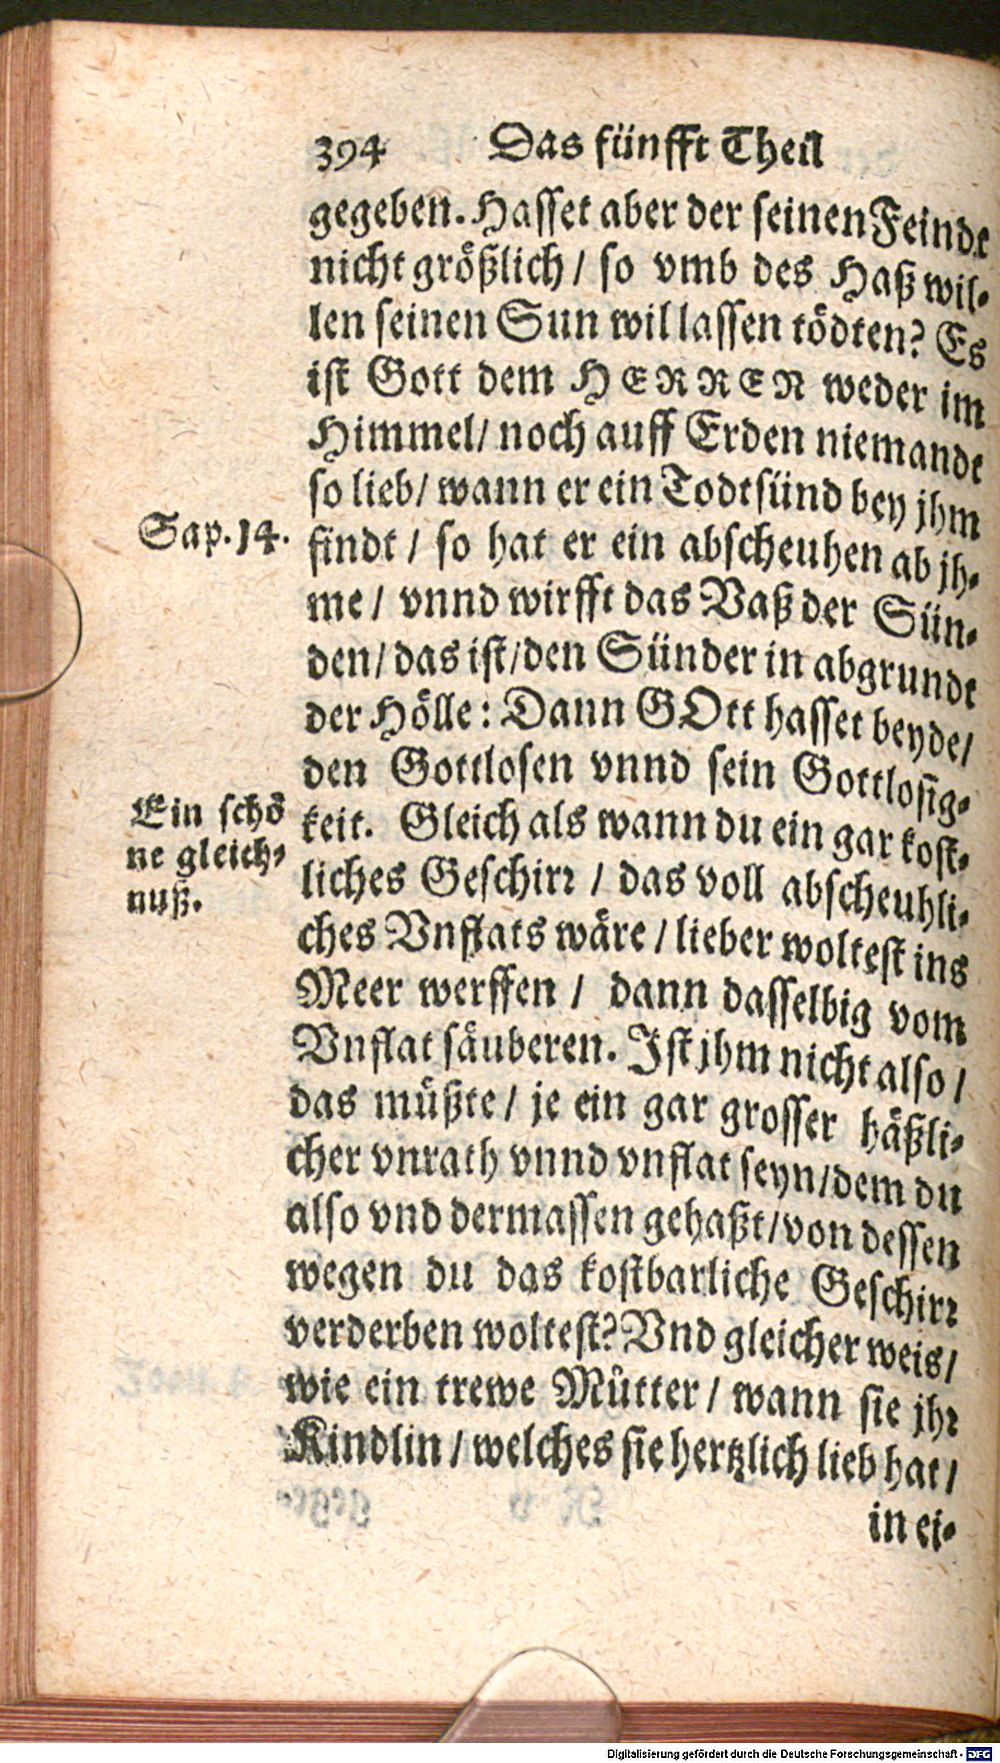 394 Das fünfft Theil
gegeben. Hasset aber der seinen Feindt
nicht größlich / so vmb des Haß wil-
len seinen Sun wil lassen tödten? Es
ist Gott dem HERREN weder im
Himmel / noch auff Erden niemandt
so lieb / wann er ein Todtsünd bey jhm
Sap. 14.
findt / so hat er ein abscheuhen ab jh-
me / vnnd wirfft das Vaß der Sün-
den / das ist / den Sünder in abgrundt
der Hölle: Dann GOtt hasset beyde /
den Gottlosen vnnd sein Gottlosig-
Ein schö
ne gleich-
nuß.
keit. Gleich als wann du ein gar kost-
liches Geschirr / das voll abscheuhli-
ches Vnflats wäre / lieber woltest ins
Meer werffen / dann dasselbig vom
Vnflat säuberen. Ist jhm nicht also /
das müßte / je ein gar grosser häßli-
cher vnrath vnnd vnflat seyn / dem du
also vnd dermassen gehaßt / von dessen
wegen du das kostbarliche Geschirr
verderben woltest? Vnd gleicher weis /
wie ein trewe Mütter / wann sie jhr
Kindlin / welches sie hertzlich lieb hat /
in ei-
Digitalisierung gefördert durch die Deutsche Forschungsgemeinschaft - DFG